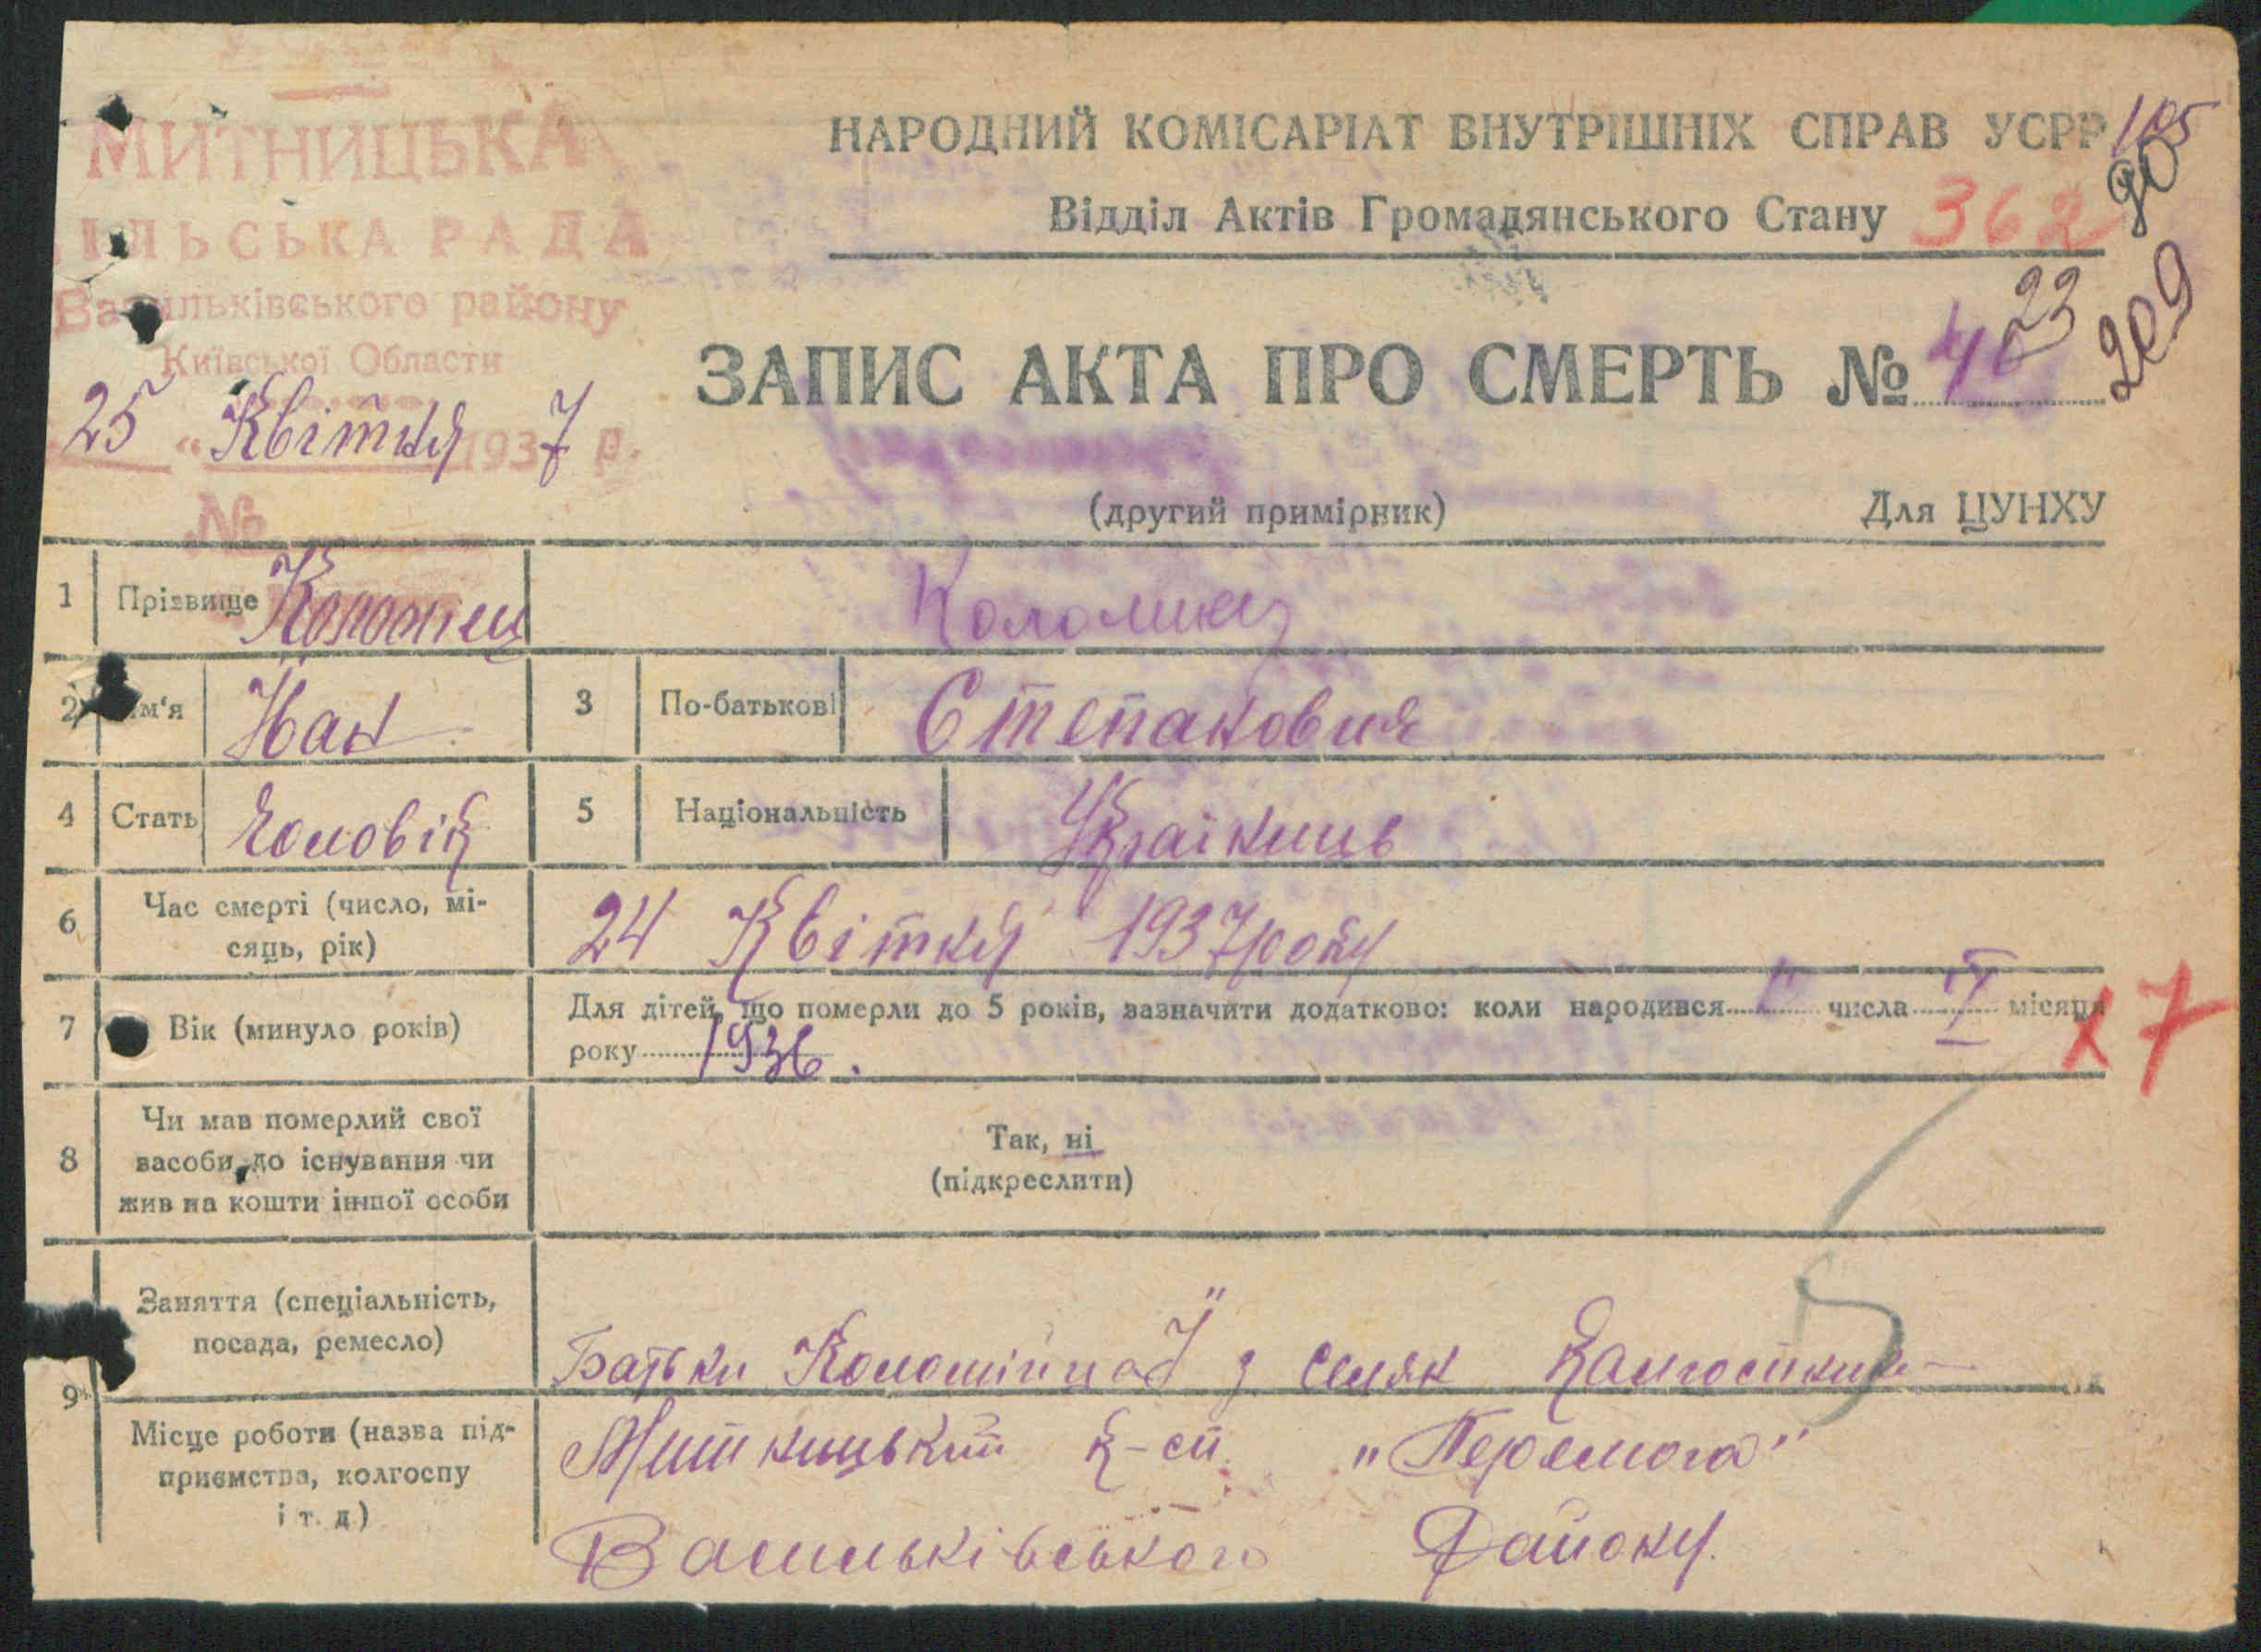 МИТНИЦЬКА
ІЛЬСЬКА РАДА
Васильківського району
Київської Области
25 " Квітня 1937 р.
№
НАРОДНИЙ КОМІСАРІАТ ВНУТРІШНІХ СПРАВ УСРР
105
80
Відділ Актів Громадянського Стану 362
23
209
ЗАПИС АКТА ПРО СМЕРТЬ №
(другий примірник) Для ЦУНХУ
1 Прізвище Коломиец
2 Ім'я Иван 3 По-батькові Степанович
4 Стать Чоловік 5 Національність Українць
6 Час смерті (число, мі-
сяць, рік) 24 Квітня 1937 року
7 Вік (минуло років) Для дітей, що померли до 5 років, зазначити додатково: коли народився числа місяця
року 1936.
х7
8 Чи мав померлий свої
засоби до існування чи
жив на кошти іншої особи
Так, ні
(підкреслити)
9 Заняття (спеціальність,
посада, ремесло)
Батьки з селян
Місце роботи (назва під-
приємства, колгоспу
і т. д.)
Митницький к-сп. "Перемога"
Васильківського Району.